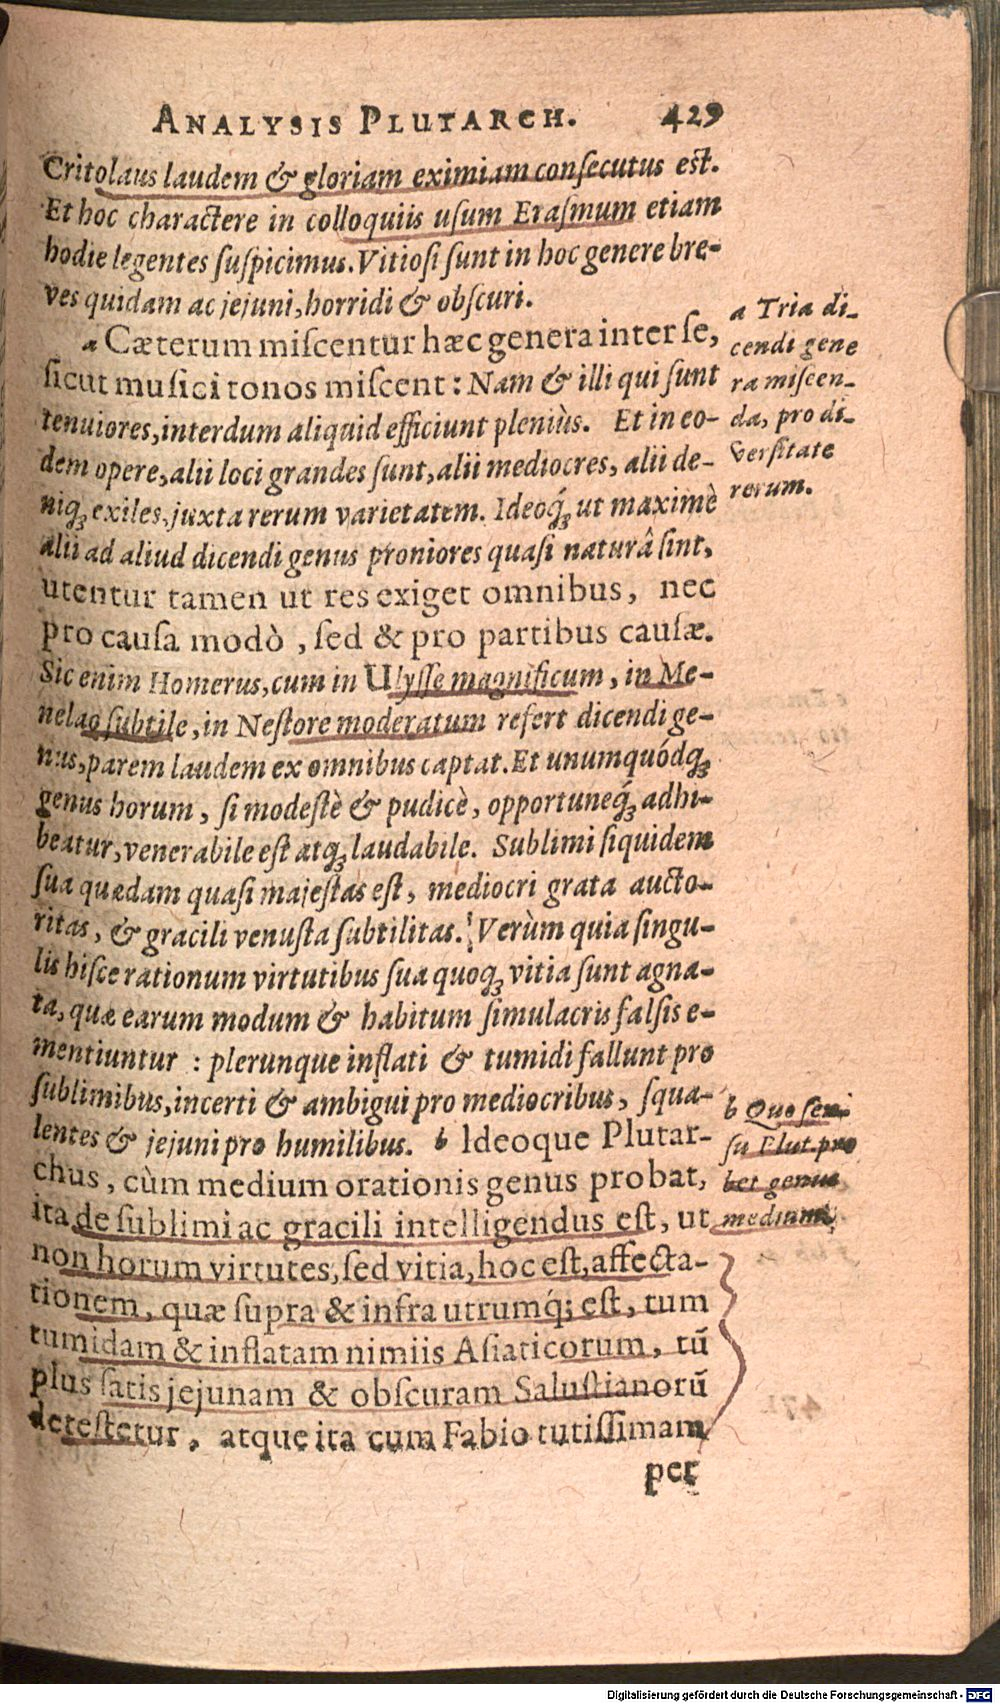 ANALYSIS PLUTARCH. 429
Critolaus laudem & gloriam eximiam conſecutus eſt.
Et hoc charactere in colloquiis uſum Eraſmum etiam
hodie legentes ſuſpicimus. Vitioſi ſunt in hoc genere bre-
ves quidam ac jejuni, horridi & obſcuri.
a Cæterum miſcentur hæc genera inter ſe,
ſicut muſici tonos miſcent: Nam & illi qui ſunt
tenuiores, interdum aliquid efficiunt pleniùs. Et in eo-
dem opere, alii loci grandes ſunt, alii mediocres, alii de-
niq́ꝫ exiles, juxta rerum varietatem. Ideoq́ꝫ ut maximè
alii ad aliud dicendi genus proniores quaſi naturâ ſint,
utentur tamen ut res exiget omnibus, nec
pro cauſa modò, ſed & pro partibus cauſæ.
Sic enim Homerus, cum in Ulyſſe magnificum, in Me-
nelao ſubtile, in Neſtore moderatum refert dicendi ge-
nus, parem laudem ex omnibus captat. Et unumquódqꝫ
genus horum, ſi modeſtè & pudicè, opportuneq́ꝫ adhi-
beatur, venerabile eſt atqꝫ laudabile. Sublimi ſiquidem
ſua quædam quaſi majeſtas eſt, mediocri grata aucto-
ritas, & gracili venuſta ſubtilitas. Verùm quia ſingu-
lis hiſce rationum virtutibus ſua quoqꝫ vitia ſunt agna-
ta, quæ earum modum & habitum ſimulacris falſis e-
mentiuntur : plerunque inflati & tumidi fallunt pro
ſublimibus, incerti & ambigui pro mediocribus, ſqua-
lentes & jejuni pro humilibus. b Ideoque Plutar-
chus, cùm medium orationis genus probat,
ita de ſublimi ac gracili intelligendus eſt, ut
non horum virtutes, ſed vitia, hoc eſt, affecta-
tionem, quæ ſupra & infra utrumq́; eſt, tum
tumidam & inflatam nimiis Aſiaticorum, tū
plus ſatis jejunam & obſcuram Saluſtianorū
deteſtetur, atque ita cum Fabio tutiſſimam
per
a Tria di-
cendi gene
ra miſcen-
da, pro di-
verſitate
rerum.
b Quo ſen-
ſu Plut. pro
bet genus
medium.
Digitalisierung gefördert durch die Deutsche Forschungsgemeinschaft - DFG